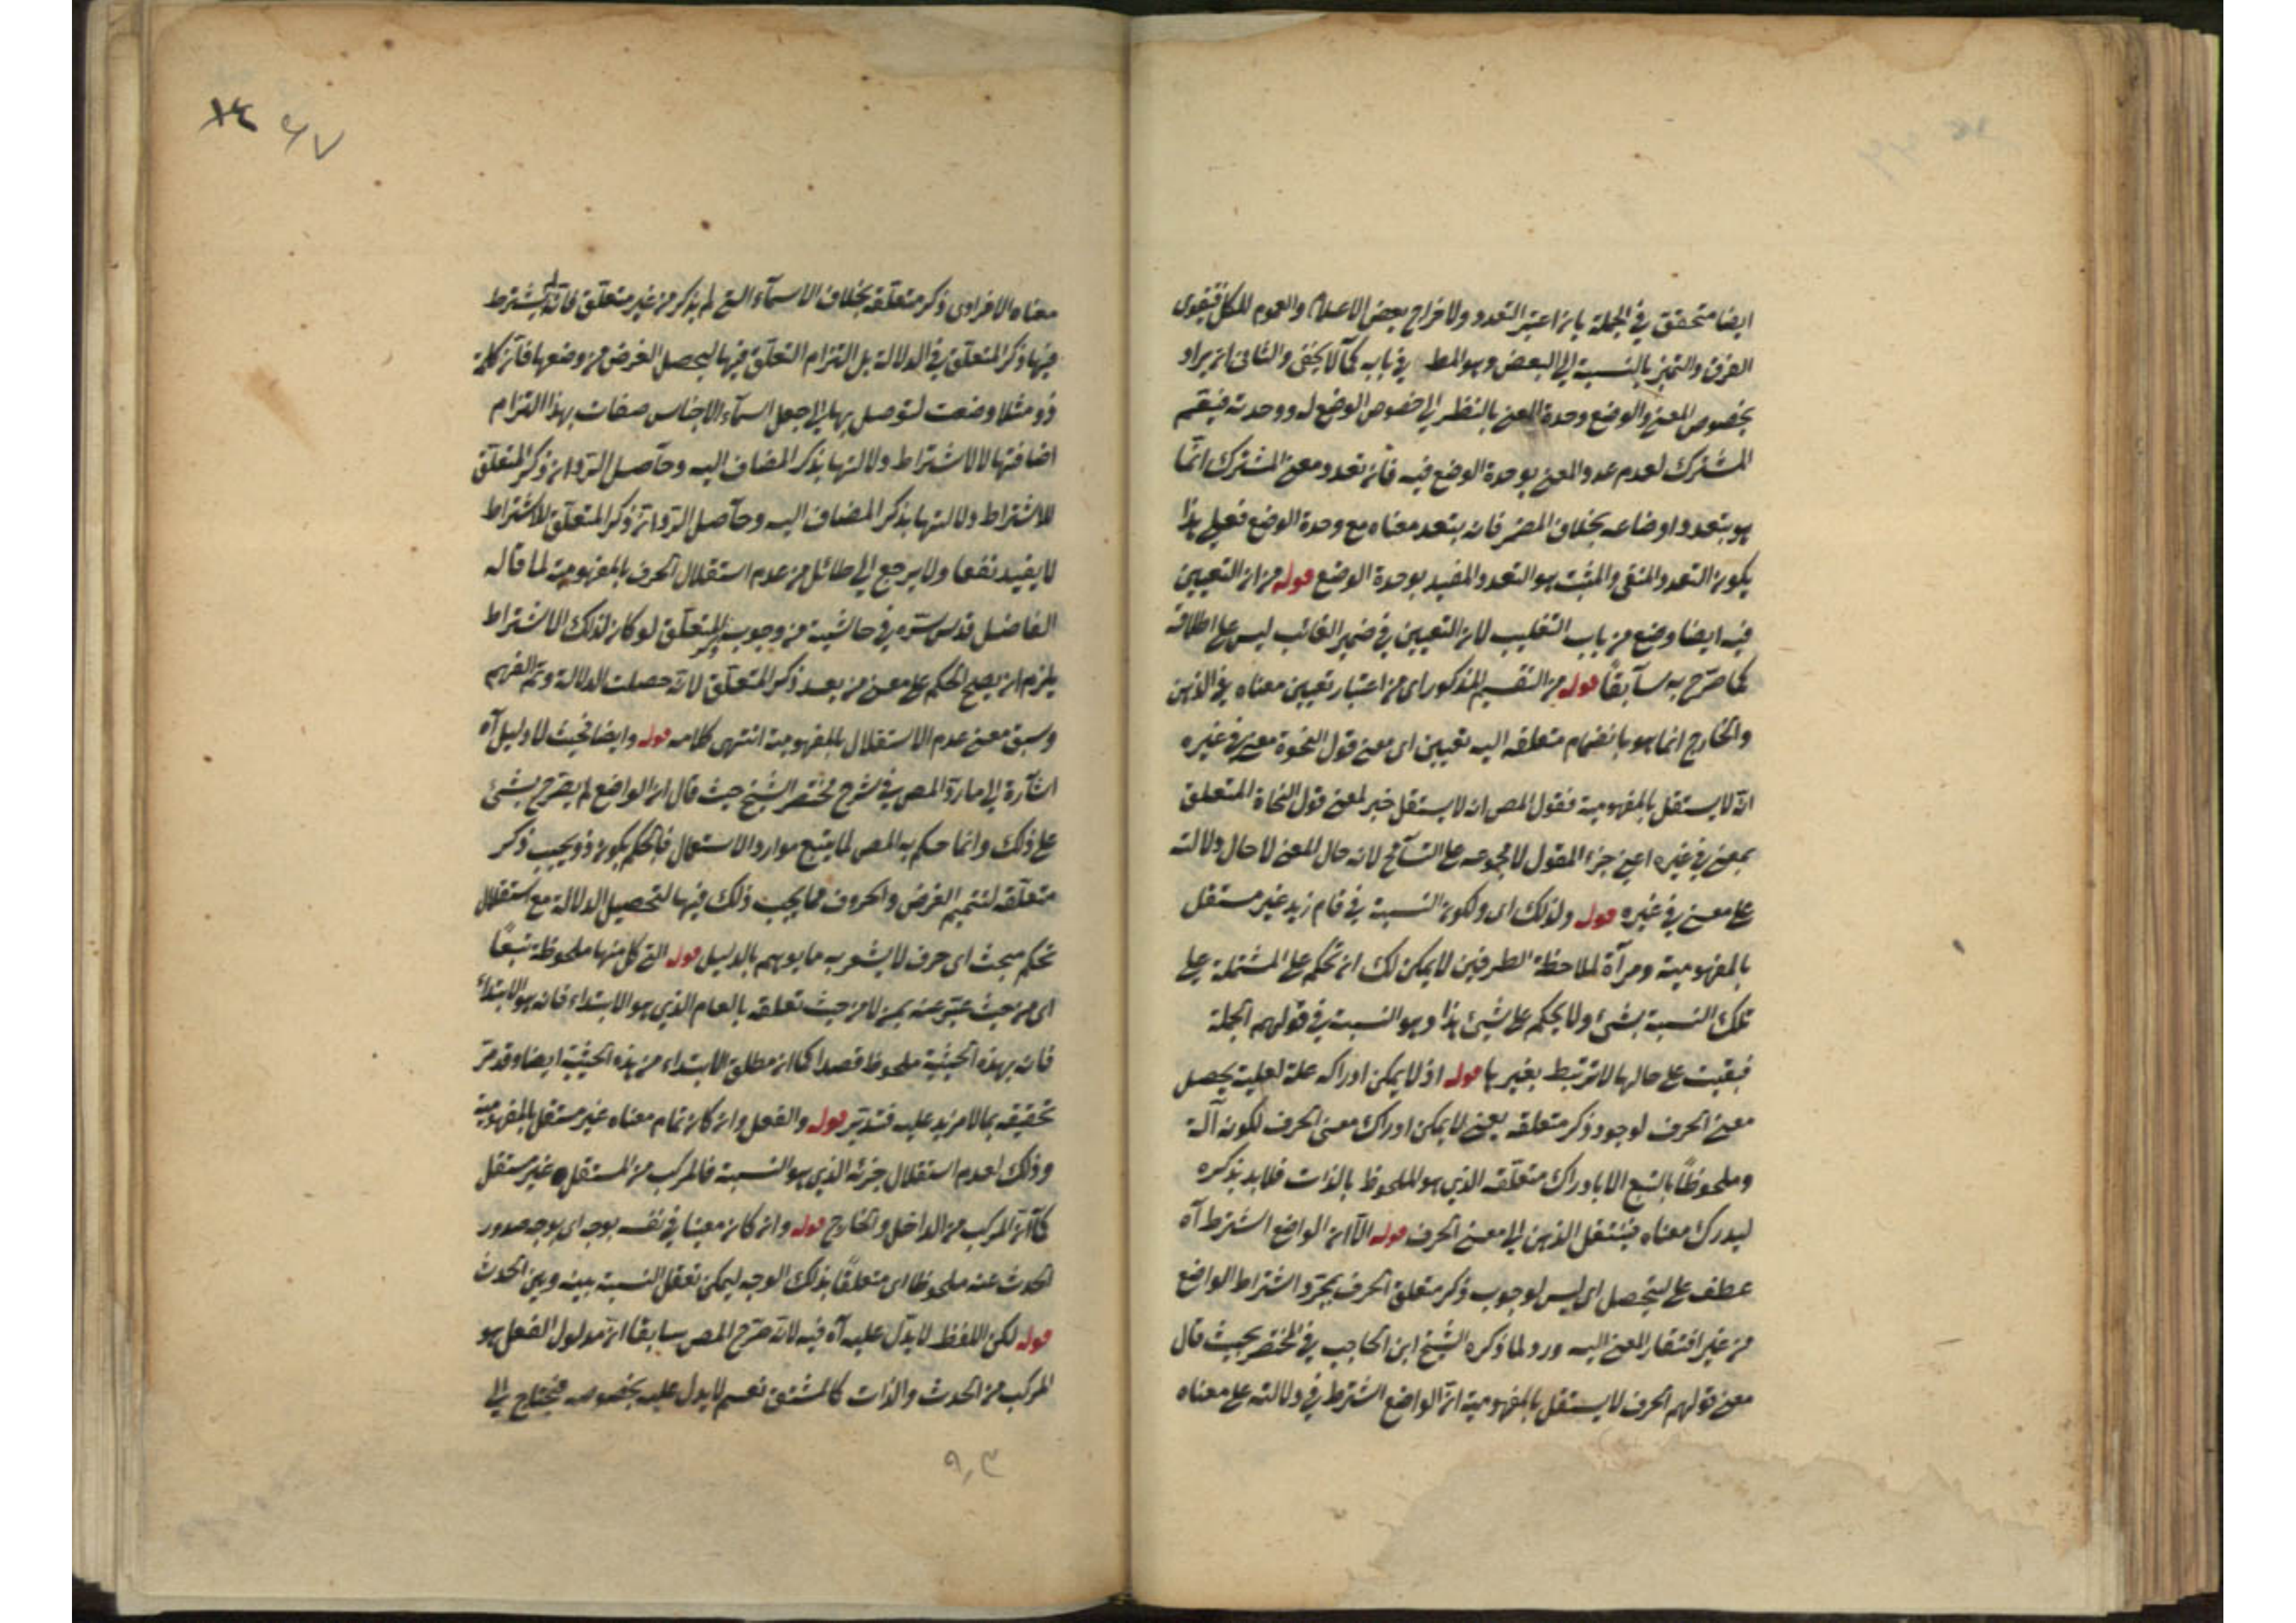 ايضا متحقق في الجملة بان اعتبر التعدد ولاخراج بعض الاعلام والعموم للكل فيقوى
الفرق والتميز بالنسبة الى البعض وهو المط في بابه كما لا يخفى والثاني ان يراد
بخصوص المعنى والوضع وحدة المعنى بالنظر الى خصوص الوضع له ووحدته فيقسم
المشترك لعدم عدد المعنى بوحدة الوضع فيه فان تعدد معنى المشترك انما
هو بتعدد اوضاعه بخلاف المضمر فان بتعدد معناه مع وحدة الوضع فعلى هذا
يكون التعدد المنفى والمثبت هو التعدد المفيد بوحدة الوضع قوله من ان التعيين
فيه ايضا وضع من باب التغليب لان التعيين في ضمير الغائب ليس على اطلاقه
كما صرح به سابقا قوله من التقسيم المذكور اى من اعتبار تعيين معناه في الذهن
والخارج انما هو بانضمام متعلقه اليه تعيين اى معنى قول النحوة معنى في غيره
انه لا يستقل بالمفهومية فقول المص انه لا يستقل خبر لمعنى قول النحاة المتعلق
بمعنى في غيره اعنى جزء المقول لا مجموعه على التسامح لانه حال المعنى لا حال دلالته
على معنى في غيره قوله ولذلك اى ولكون النسبة في قام زيد غير مستقل
بالمفهومية ومرآة لملاحظة الطرفين لا يمكن لك ان تحكم على المشتملة على
تلك النسبة بشئ ولا يحكم على شئ هذا وهو النسبة في قولهم الجملة
فبقيت على حالها لا ترتبط بغيرها قوله اذ لا يمكن ادراكه علة لعلية يحصل
معنى الحرف لوجود ذكر متعلقه يعنى لا يمكن ادراك معنى الحرف لكونه آلة
وملحوظا بالتبع الا بادراك متعلقه الذى هو الملحوظ بالذات فلا بد بذكره
ليدرك معناه فينتقل الذهن الى معنى الحرف قوله الا ان الواضع اشترط آه
عطف على ليتحصل اى ليس لوجوب ذكر متعلق الحرف بمجرد اشتراط الواضع
من غير افتقار المعنى اليه ورد لما ذكره الشيخ ابن الحاجب في المختصر بحيث قال
معنى قولهم الحرف لا يستقل بالمفهومية ان الواضع اشترط في دلالته على معناه
٤٧
معناه الافرادى ذكر متعلقه بخلاف الاسماء التى لم يذكر من غير متعلق فانه لم يشترط
فيها ذكر المتعلق في الدلالة بل التزام التعلق فيها ليحصل الغرض من وضعها فان كلمة
ذو مثلا وضعت لتوصل بها الى جعل اسماء الاجناس صفات بهذا التزام
اضافتها لا لاشتراط دلالتها بذكر المضاف اليه وحاصل الرد ان ذكر المتعلق
للاشتراط دلالتها بذكر المضاف اليه وحاصل الرد ان ذكر المتعلق للاشتراط
لا يفيد نفعا ولا يرجع الى طائل من عدم استقلال الحرف بالمفهومية لما قاله
الفاضل قدس سره في حاشيته من وجوب ذكر المتعلق لو كان لذلك الاشتراط
يلزم ان يصح الحكم على معنى من بعد ذكر المتعلق لانه حصلت الدلالة وتم الفهم
وسبق معنى عدم الاستقلال بالمفهومية انتهى كلامه قوله وايضا فحيث لا دليل آه
اشارة الى ما رده المص في شرح مختصر الشيخ حيث قال ان الواضع لم يصرح بشئ
على ذلك وانما حكم به المص لما يتبع موارد الاستعمال فالحكم بكون ذو يجب ذكر
متعلقه لتتميم الغرض والحروف مما يجب ذلك فيها لتحصيل الدلالة مع استقلال
تحكم مبحث اى حرف لا يشعر به ما يوهم بالدليل قوله التى كل منها ملحوظة تبعا
اى من حيث عبر عنه بمن لا من حيث تعلقه بالعام الذى هو الابتداء فانه هو الابتداء
فان بهذه الحيثية ملحوظ قصدا كما ان مطلق الابتداء من هذه الحيثية ايضا وقد مر
تحقيقه بما لا مزيد عليه فتدبر قوله والفعل وان كان تمام معناه غير مستقل بالمفهومية
وذلك لعدم استقلال جزئه الذى هو النسبة فالمركب من المستقل غير مستقل
كما ان المركب من الداخل والخارج قوله وان كان معينا في نفسه بوجه اى بوجه صدور
الحدث عنه ملحوظا اى متعلقا بذلك الوجه ليمكن تعقل النسبة بينه وبين الحدث
قوله لكن اللفظ لا يدل عليه آه فيه لانه صرح المص سابقا ان مدلول الفعل هو
المركب من الحدث والذات كالمشتق نعم لا يدل عليه بخصوصه فيحتاج الى